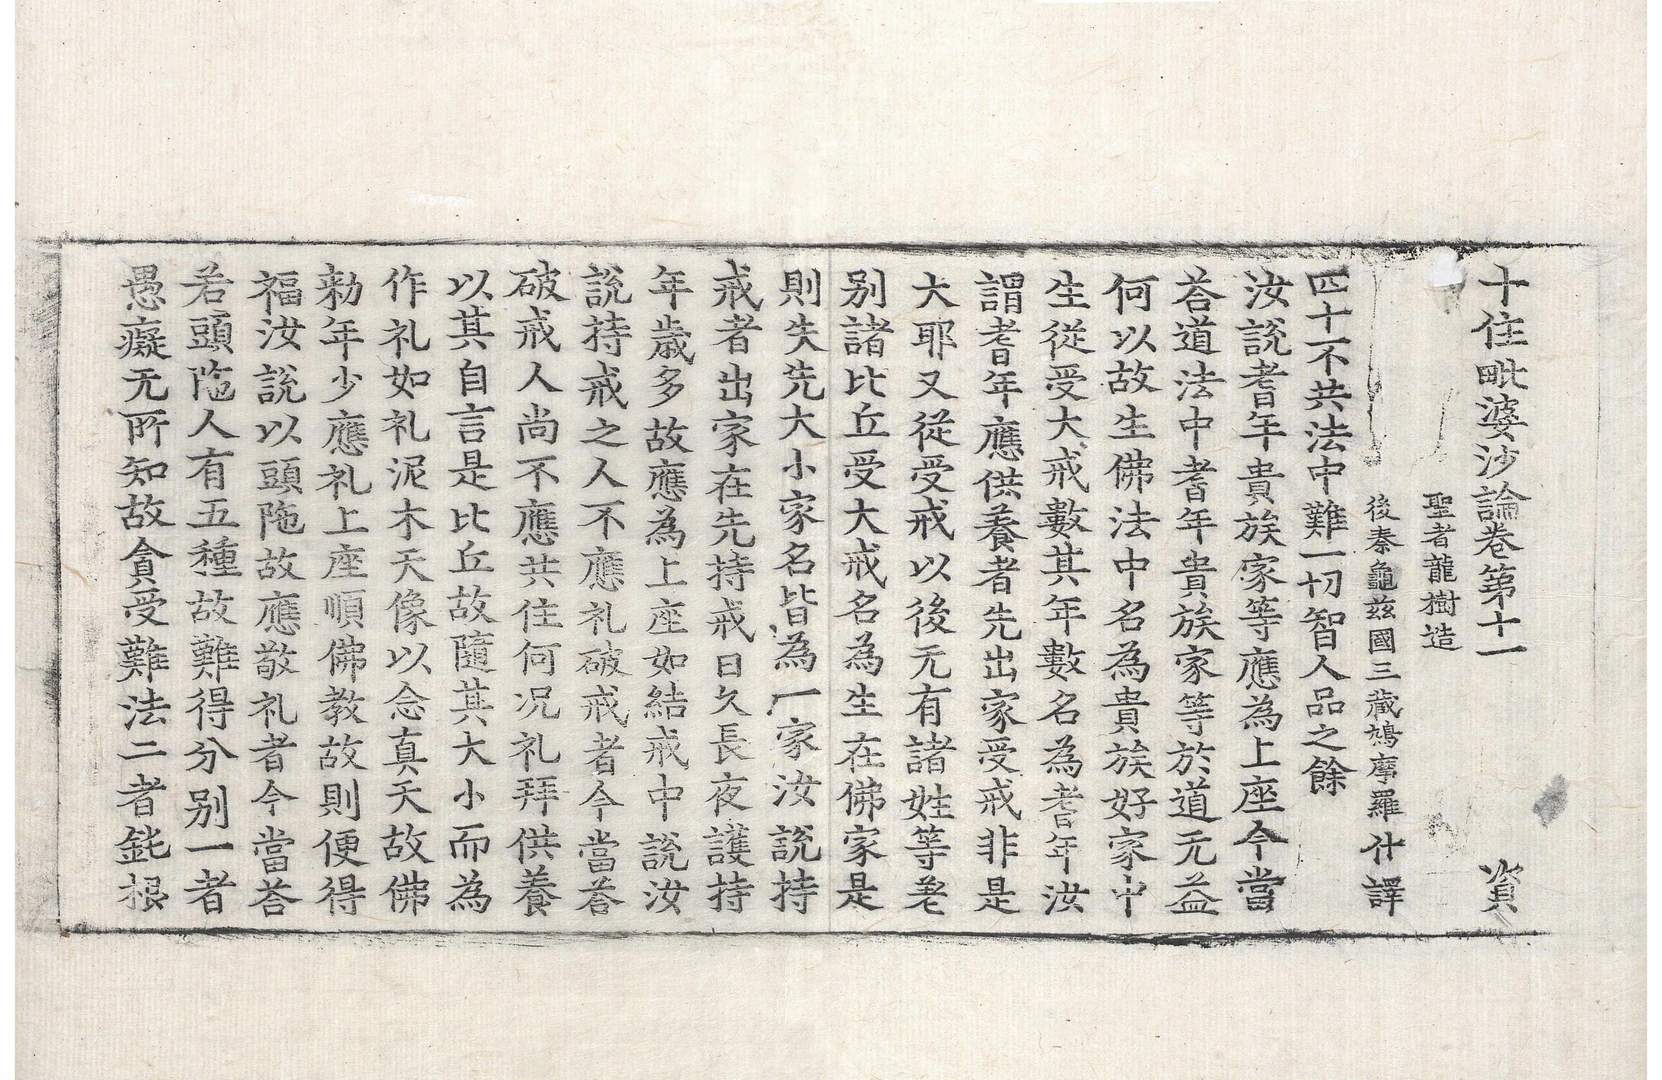 十住毗婆沙論卷第十一　資
聖者龍樹造
後秦龜茲國三藏鳩摩羅什譯
四十不共法中難一切智人品之餘
汝說耆年貴族家等應為上座今當
荅道法中耆年貴族家等於道无益
何以故生佛法中名為貴族好家中
生從受大戒數其年數名為耆年汝
謂耆年應供養者先出家受戒非是
大耶又從受戒以後无有諸姓等差
別諸比丘受大戒名為生在佛家是
則失先大小家名皆為一家汝說持
戒者出家在先持戒日久長夜護持
年歲多故應為上座如結戒中說汝
說持戒之人不應礼破戒者今當荅
破戒人尚不應共住何況礼拜供養
以其自言是比丘故隨其大小而為
作礼如礼泥木天像以念真天故佛
勑年少應礼上座順佛教故則便得
福汝說以頭陁故應敬礼者今當荅
若頭陁人有五種故難得分別一者
愚癡无所知故貪受難法二者鈍根